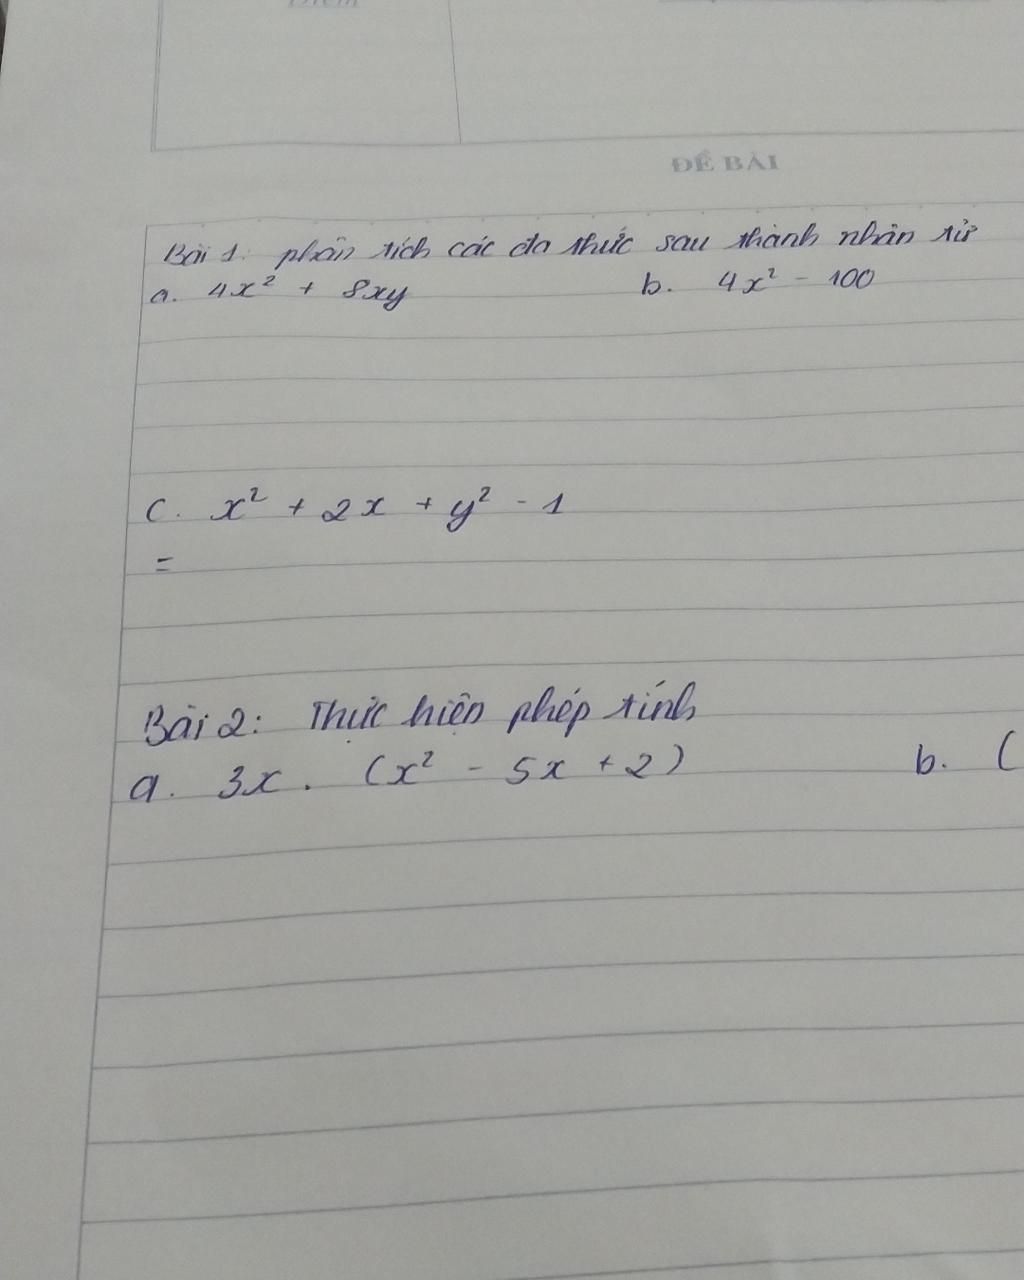 Điểm
ĐỀ BÀI
Bài 1: phân tích các đa thức sau thành nhân tử
a. 4x² + 8xy b. 4x² - 100
c. x² + 2x + y² - 1
=
Bài 2: Thực hiện phép tính
a. 3x . (x² - 5x + 2) b. (